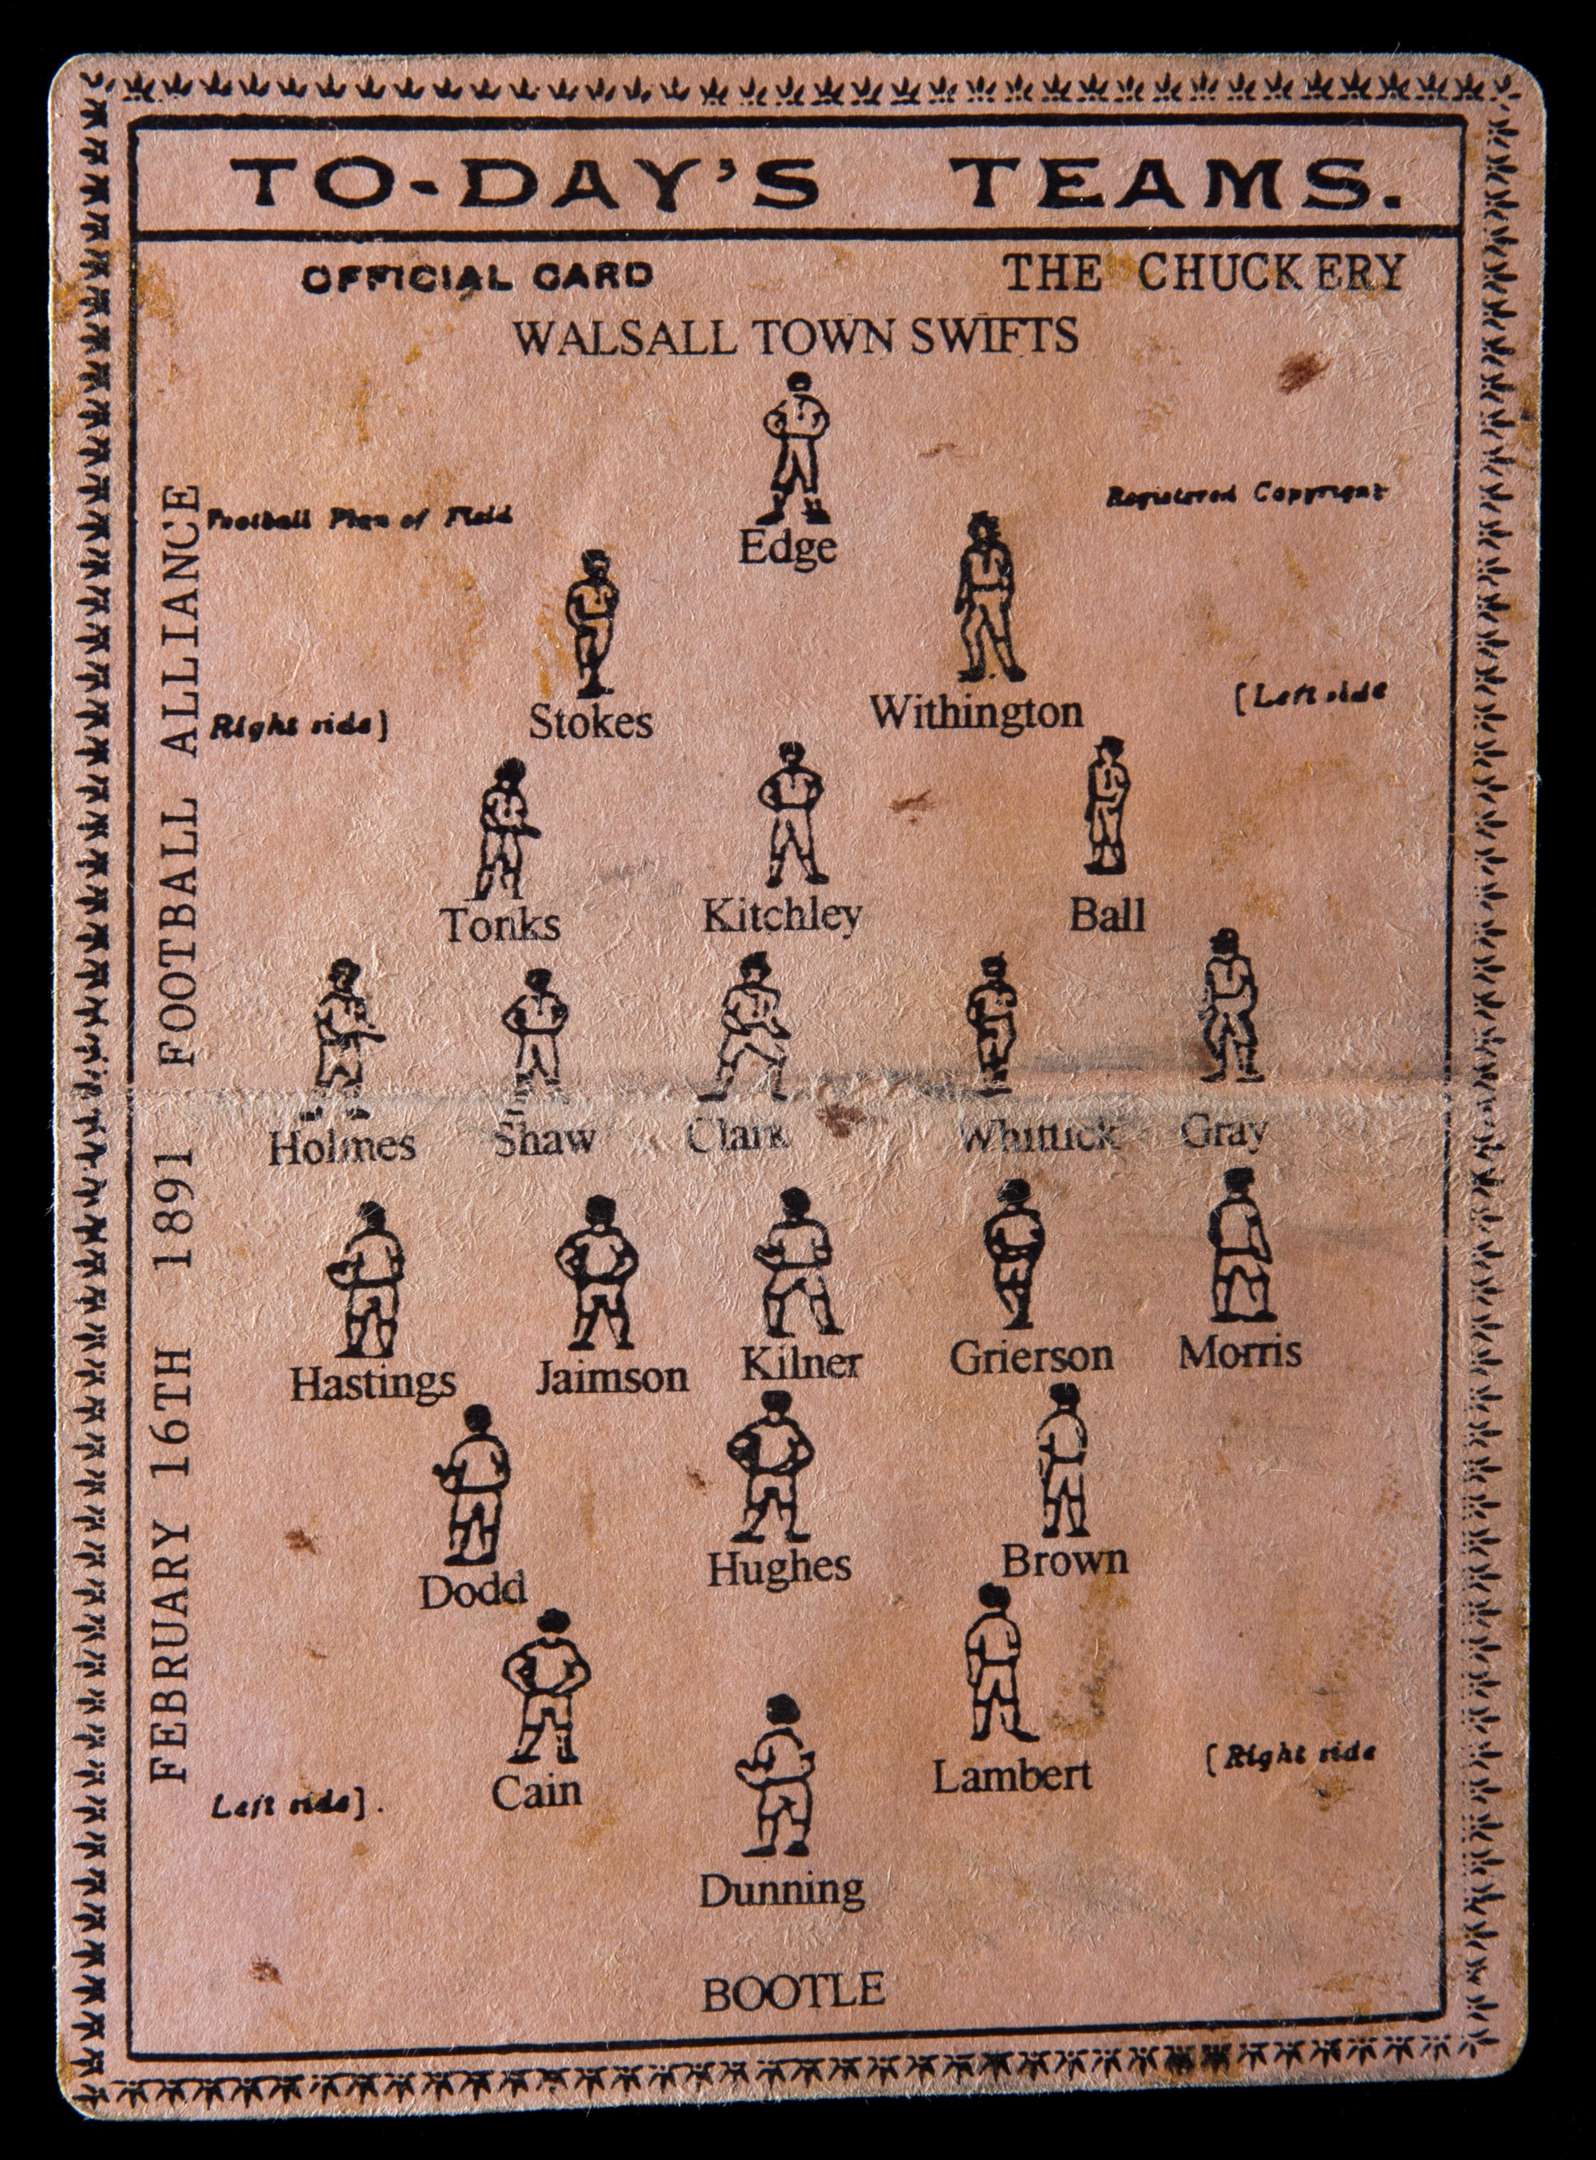 TO-DAY'S TEAMS.
OFFICIAL CARD THE CHUCKERY
WALSALL TOWN SWIFTS
Edge
Football Plan of Field Registered Copyright
Stokes Withington
Right side] [Left side
Tonks Kitchley Ball
Holmes Shaw Clark Whittick Gray
Hastings Jaimson Kilner Grierson Morris
Dodd Hughes Brown
Cain Lambert
Left side]. [Right side
Dunning
BOOTLE
FEBRUARY 16TH 1891 FOOTBALL ALLIANCE